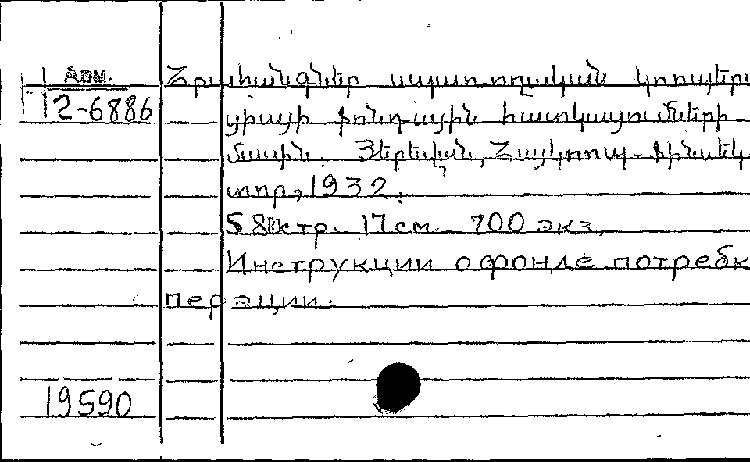 Арм.
12-6886
Հրահանգներ սպառողական կոոպերա
ցիայի ֆոնդային հատկացումների
մասին. Յերեվան, Հայկոոպ-
տպր, 1932.
58 стр. 17 см. 700 экз.
Инструкции о фонде потребк
перации.
19590